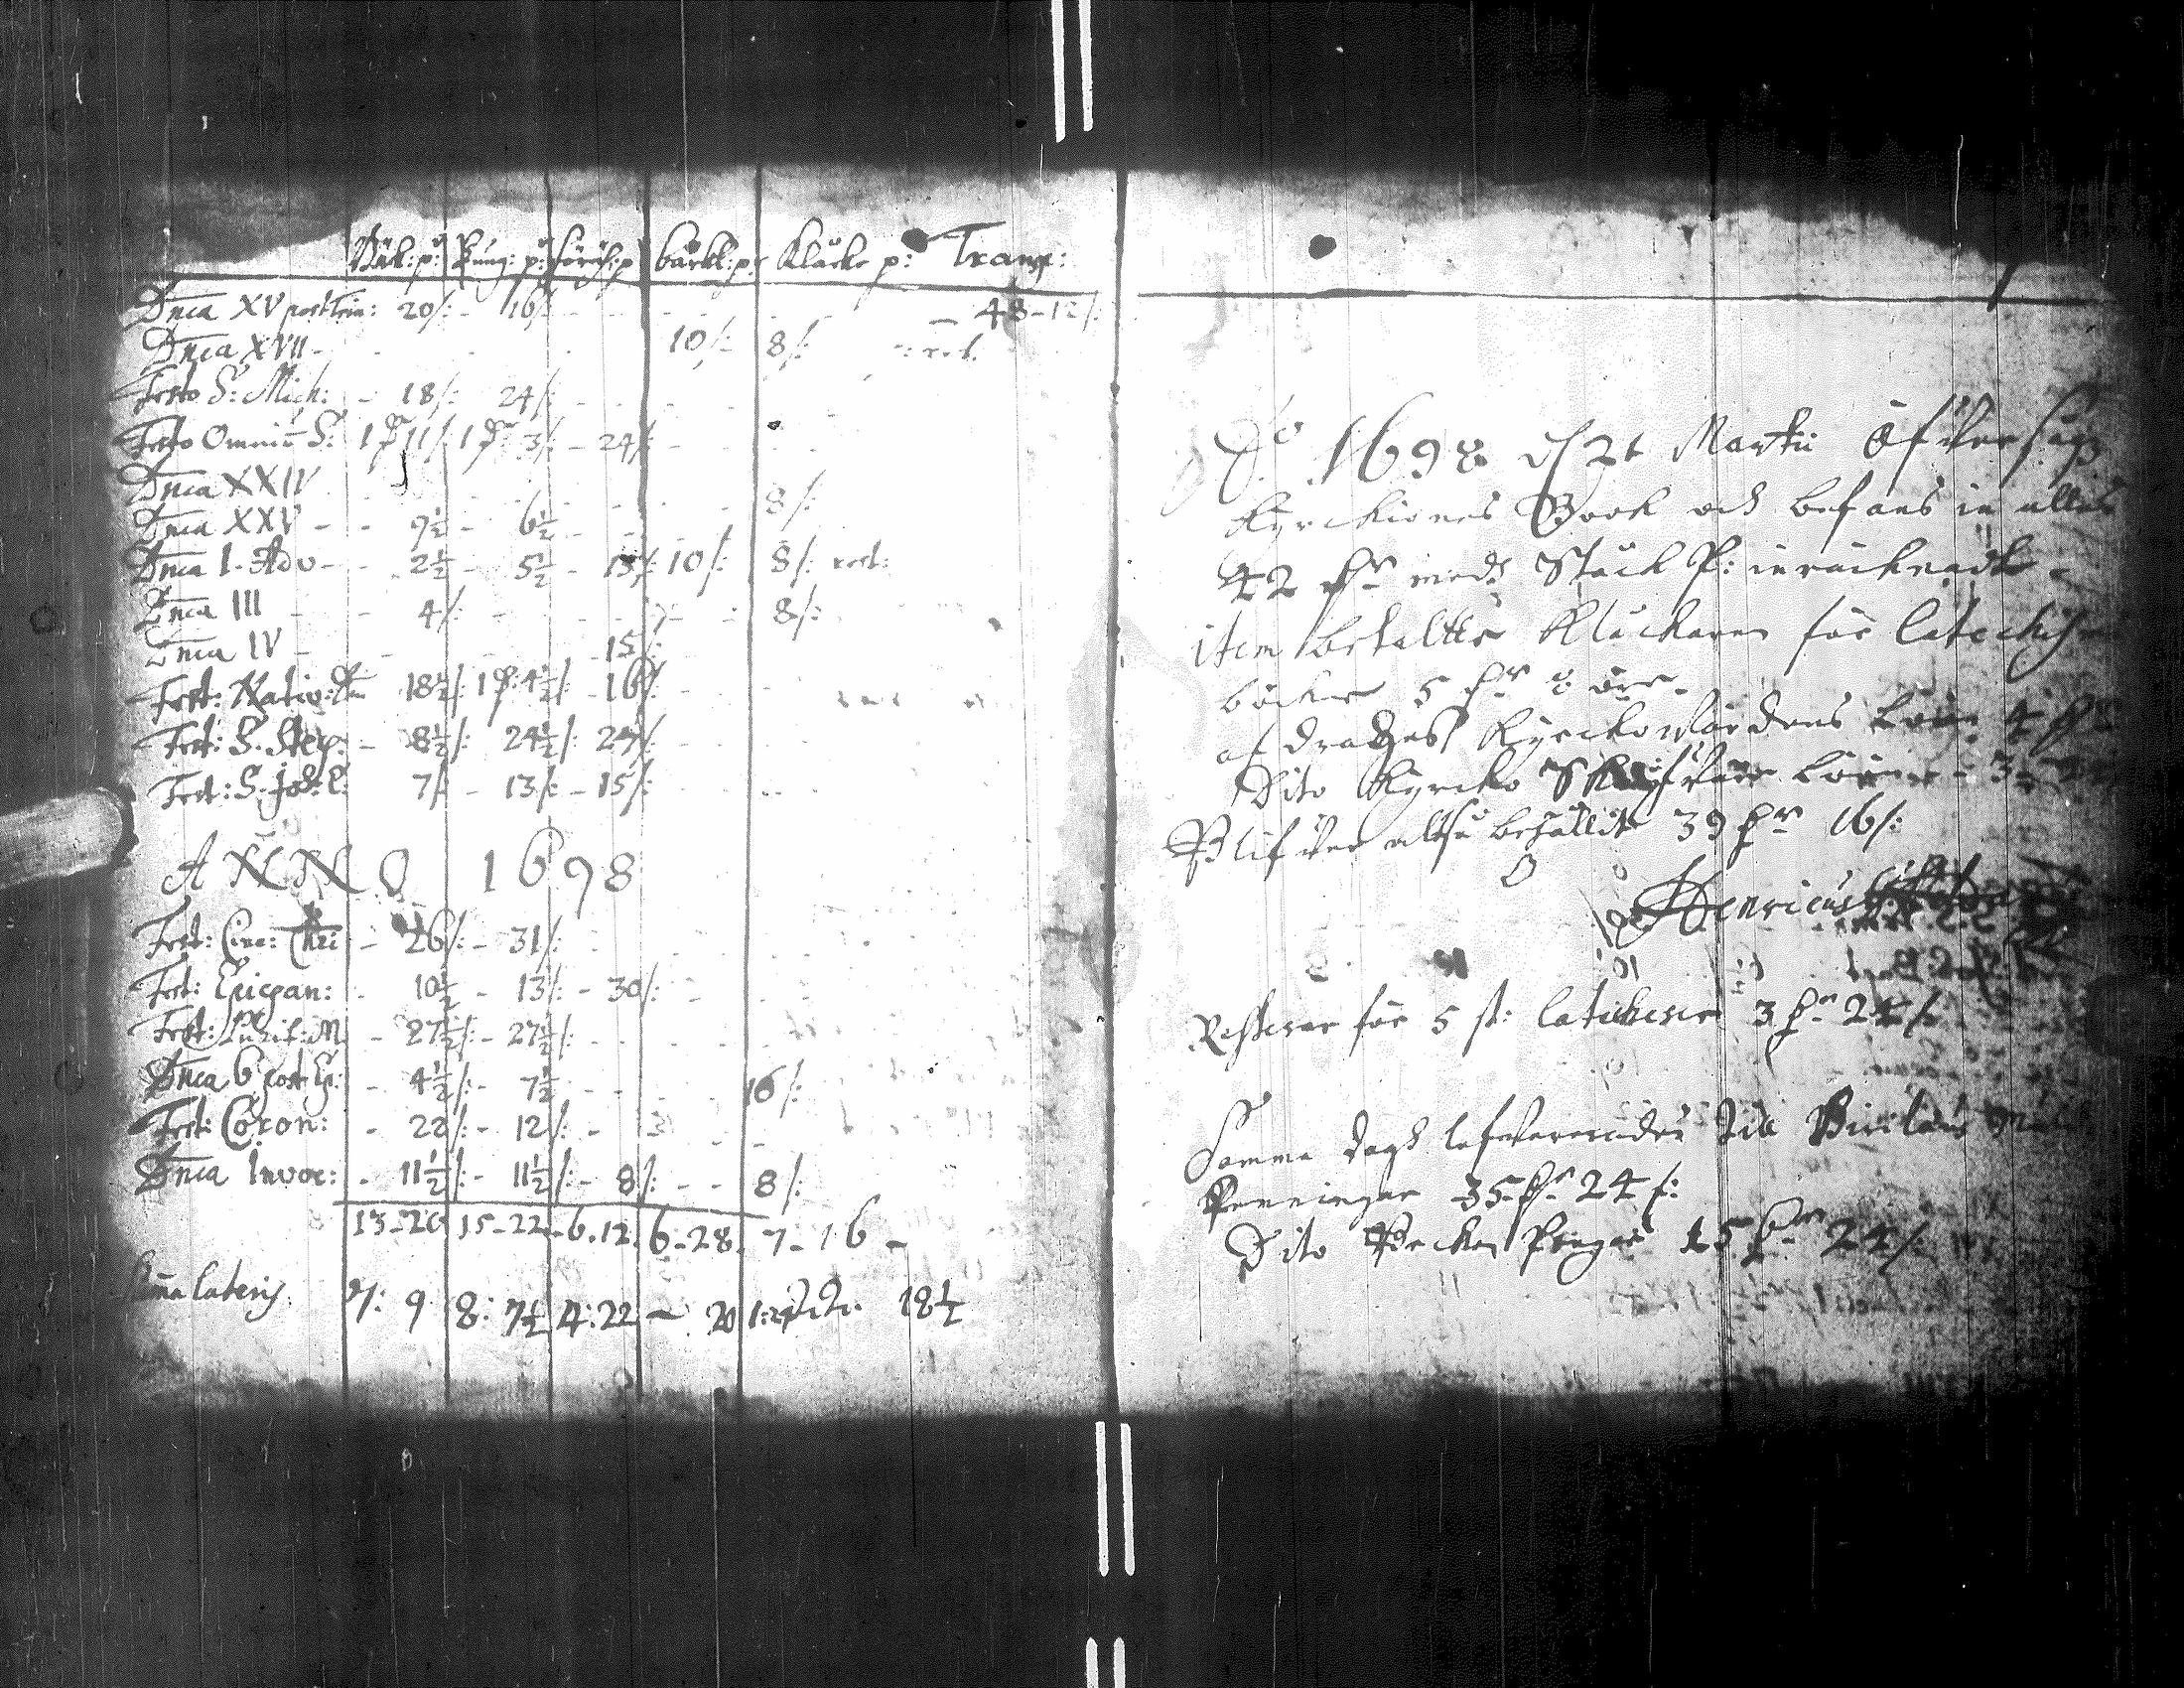 Bäck: p: Pung: p: försäl: p bårkl: p: Klåcke p: Transp:
Dnca XV post Trin: 20/: - 16/: - 48-12/:
Dnca XVII - 10/: 8/: rest.
Festo S: Mich: - 18/: 24/:
Festo Omniū S: 1 dr 11/: 1 dr 3/: - 24/:
Dnca XXIV 8/:
Dnca XXV - - 9½ - 6½
Dnca I. Adv - - 2½ - 5½ - 13/: 10/: 8/: rest:
Dnca III - 4/: - 8/:
Dnca IV - 15/:
Fest: Nativ: Dm 18½/: 1 d: 4½/: - 16/:
Fest: S. Step: - 8½/: 24½/: 24/:
Fest: S. Joh: E: 7/: - 13/: - 15/:
ANNO 1698
Fest: Circ: Chri - 26/: - 31/:
Fest: Epiphan: - 10½ - 13/: - 30/:
Fest: Purif: M - 27½/: - 27½/:
Dnca 6 post Ep: - 4½/: - 7½ 16/:
Fest: Coron: - 22/: - 12/: -
Dnca Invoc: - 11½/: - 11½/: - 8/: - - 8/:
13-20 15-22 6.12. 6-28. 7-16 -
Suma lateris. 7: 9 8: 7½ 4: 22 - 20 1:24 18½
Ao 1698 d 21 Martii öfwersågz
Kyrckiones Book och befans in alles
42 dr medh Stäck P: inräcknadt
item betaltes Klåckaren för Catechis
böcker 5 dr 8 öre.
afdrages Kyrckowärdens Löön 4 dr
Dito Kyrcko Skrifware Löön - 3
Blifwer altså behållit 39 dr 16/:
Henricus
Resterar för 5 st: Catecheser 3 dr 24/:
Samma dagh lefwererades
Penningar 35 dr 24/:
Dito Böcken Pengar 15 dr 24/: